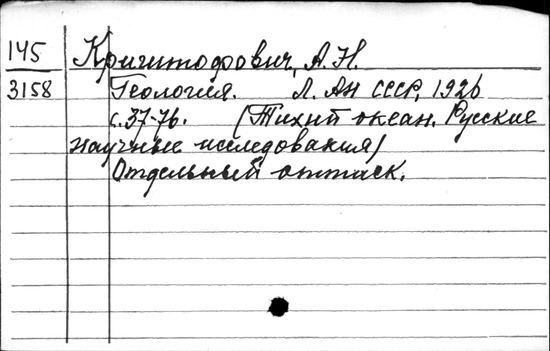 145 Криштофович, А. Н.
3158 Геология. Л. АН СССР, 1926
с. 37-76. (Тихий океан. Русские
научные исследования)
Отдельный оттиск.